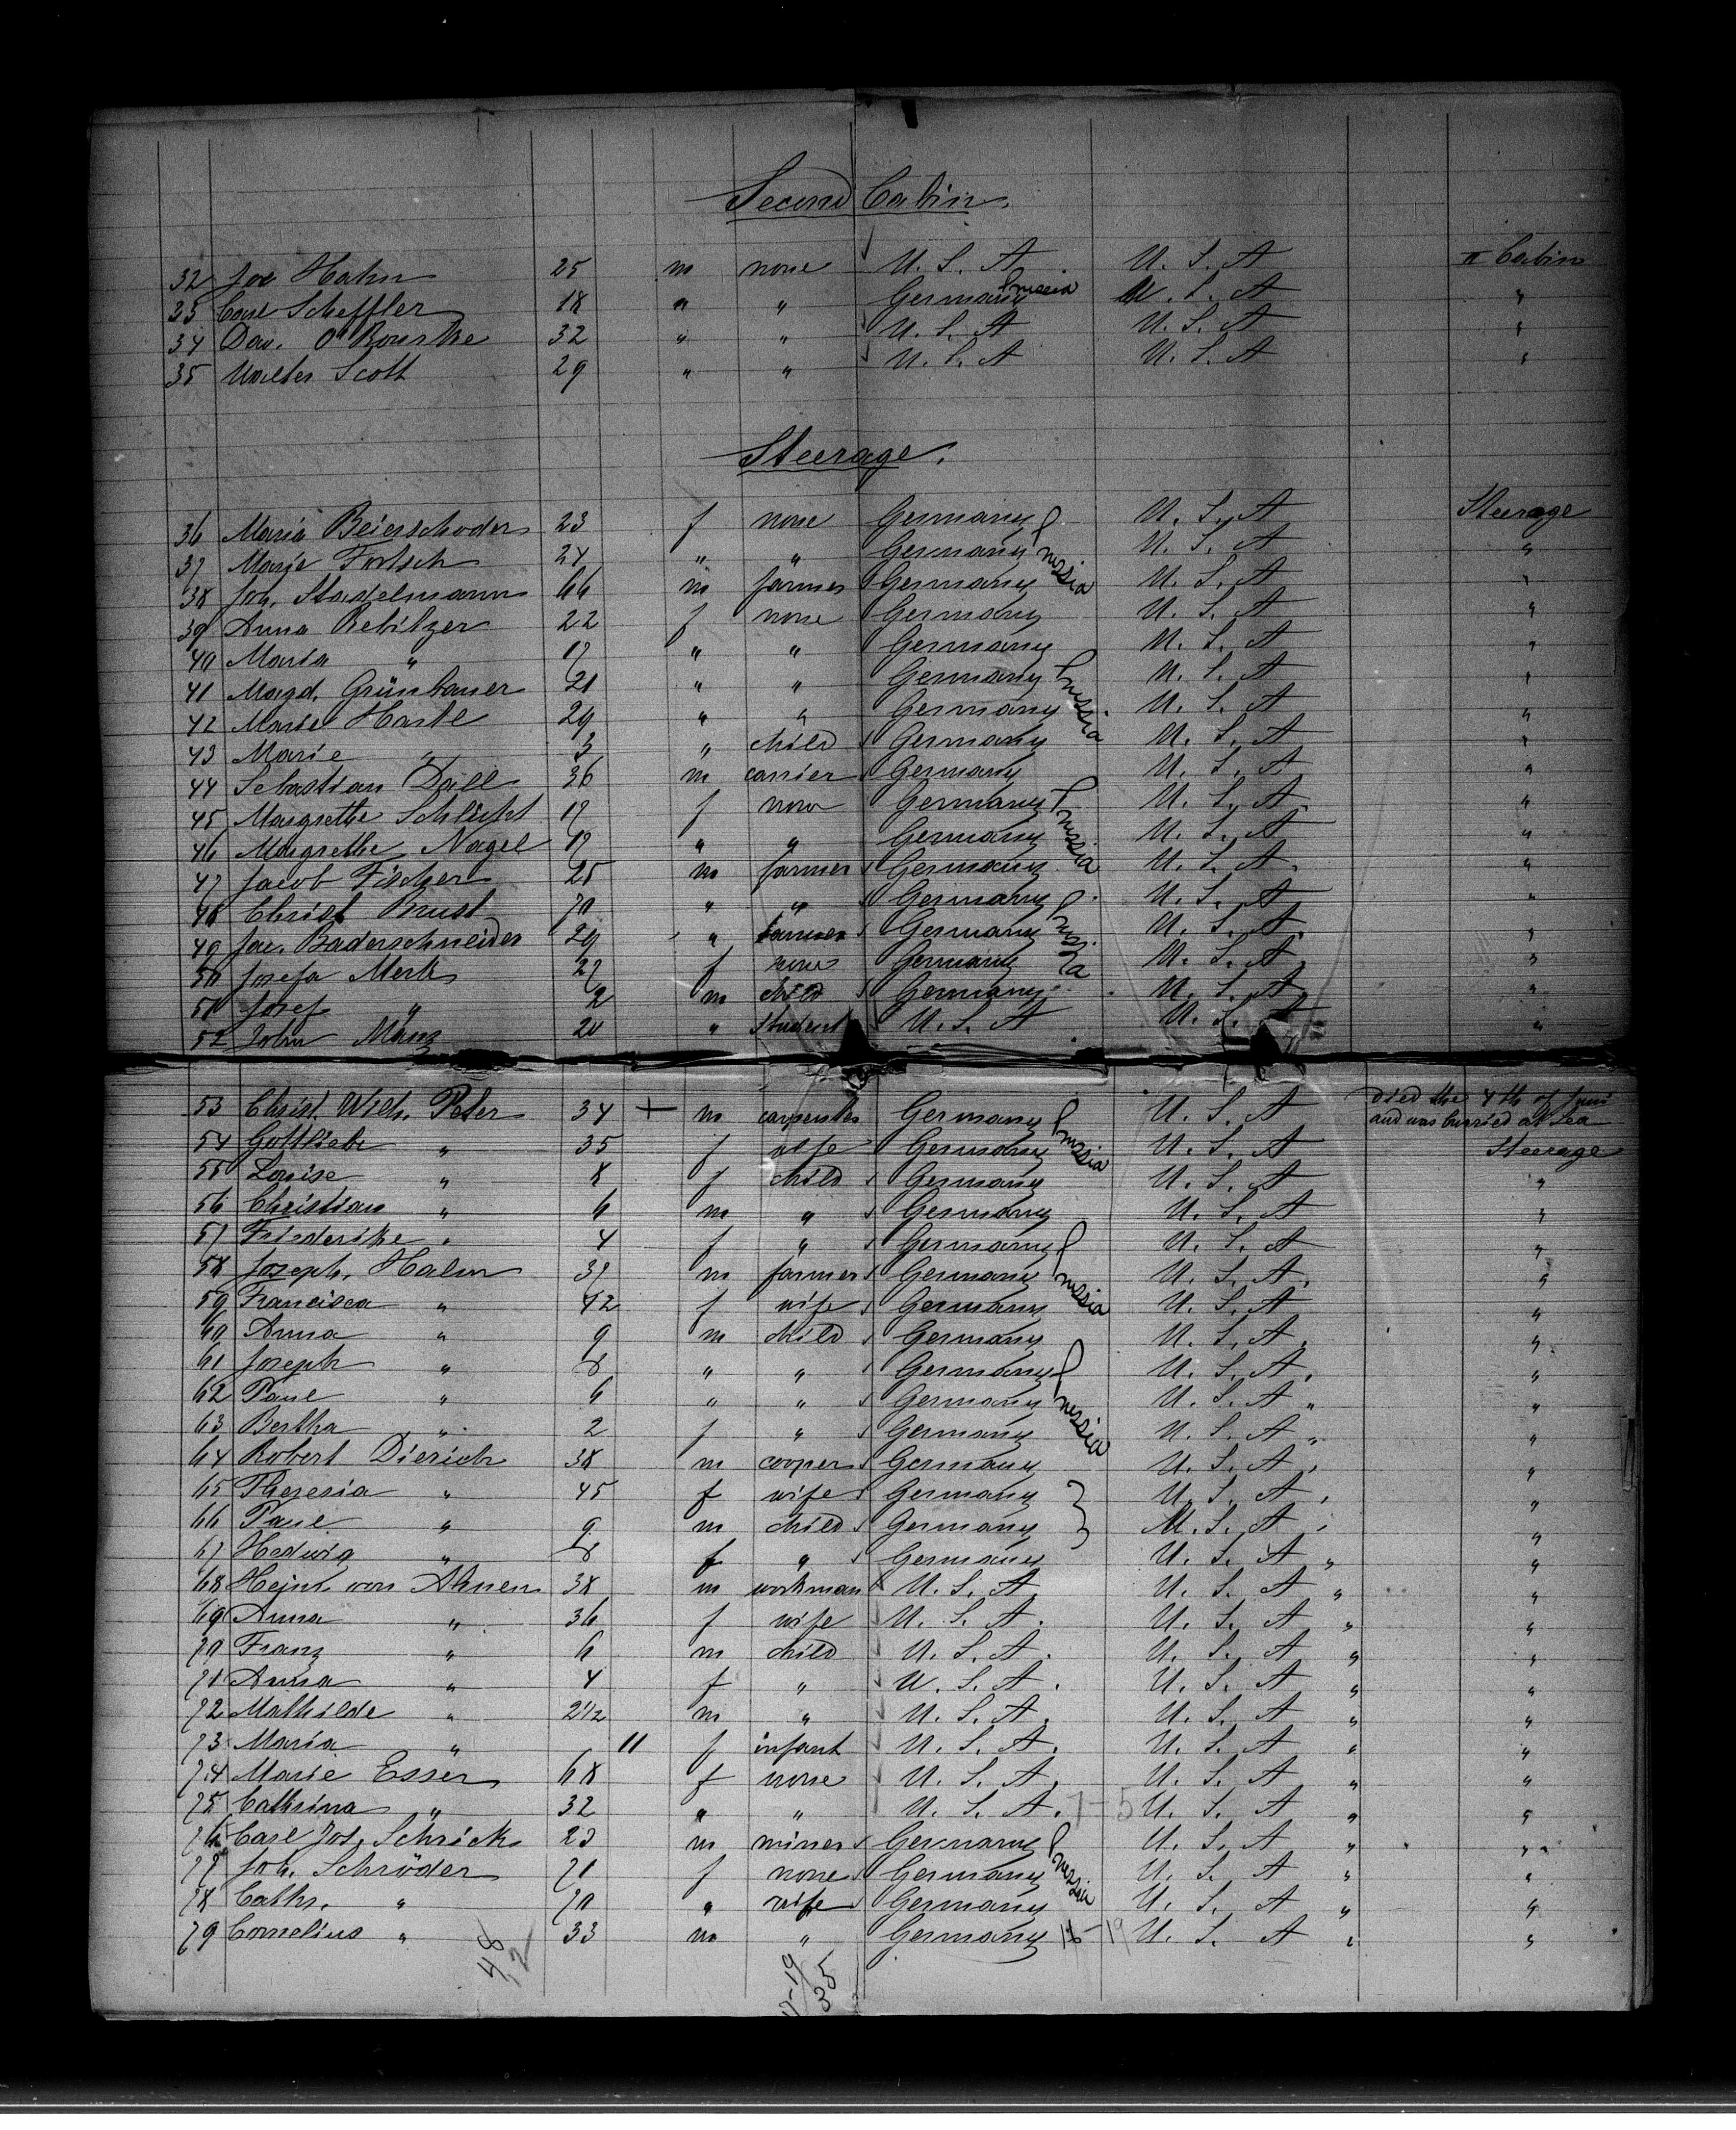 Second Cabin.
32 Joe Hahn 25 m none U. S. A U. S. A II Cabin
33 Carl Scheffler 18 " " Germany Prussia U. S. A "
34 Dav. O'Rourke 32 " " U. S. A U. S. A "
35 Walter Scott 29 " " U. S. A U. S. A "
Steerage.
36 Maria Beierschoder 23 f none Germany Prussia U. S. A Steerage
37 Marie Fortsch 24 " " Germany U. S. A "
38 Joh. Stadelmann 66 m farmer Germany U. S. A "
39 Anna Rebitzer 22 f none Germany U. S. A "
40 Maria " 17 " " Germany U. S. A "
41 Magd. Grünbauer 21 " " Germany Prussia U. S. A "
42 Marie Hartl 29 " " Germany U. S. A "
43 Marie " 3 " child Germany U. S. A "
44 Sebastian Doll 36 m carrier Germany U. S. A "
45 Margrethe Schlicht 17 f none Germany Prussia U. S. A. "
46 Margrethe Nagel 17 " " Germany U. S. A "
47 Jacob Fischer 25 m farmer Germany U. S. A. "
48 Christ Brust 70 " " Germany Prussia U. S. A "
49 Jac. Baderschneider 29 " farmer Germany U. S. A. "
50 Josefa Merk 27 f none Germany U. S. A. "
51 Josef " 2 m child Germany U. S. A "
52 John Manz 20 " student U. S. A U. S. A "
53 Christ. Wilh. Peter 34 + m carpenter Germany Prussia U. S. A Died the 4th of Juni
and was burried at Sea
54 Gottliebe " 35 f wife Germany U. S. A Steerage
55 Louise " 8 f child Germany U. S. A "
56 Christian " 6 m " Germany U. S. A "
57 Friederike " 4 f " Germany Prussia U. S. A "
58 Joseph. Halm 37 m farmer Germany U. S. A. "
59 Francisca " 42 f wife Germany U. S. A "
60 Anna " 9 m child Germany U. S. A. "
61 Joseph " 8 " " Germany Prussia U. S. A. "
62 Paul " 6 " " Germany U. S. A " "
63 Bertha " 2 f " Germany U. S. A " "
64 Robert Dierich 38 m cooper Germany U. S. A " "
65 Theresia " 45 f wife Germany U. S. A " "
66 Paul " 9 m child Germany U. S. A " "
67 Hedwig " 8 f " Germany U. S. A " "
68 Heinr. von Ahnen 38 m workman U. S. A U. S. A " "
69 Anna " 36 f wife U. S. A. U. S. A " "
70 Franz " 6 m child U. S. A. U. S. A " "
71 Anna " 4 f " U. S. A. U. S. A " "
72 Mathilde " 2 1/2 m " U. S. A. U. S. A " "
73 Maria " 11 f infant U. S. A. U. S. A " "
74 Marie Esser 68 f none U. S. A. U. S. A " "
75 Cathrina " 32 " " U. S. A. 7-5 U. S. A " "
76 Carl Jos. Schrick 23 m miner Germany Prussia U. S. A " "
77 Joh. Schröder 71 f none Germany U. S. A " "
78 Cathr. " 70 " wife Germany U. S. A " "
79 Cornelius " 33 m " Germany 16-19 U. S. A " "
48
12
35